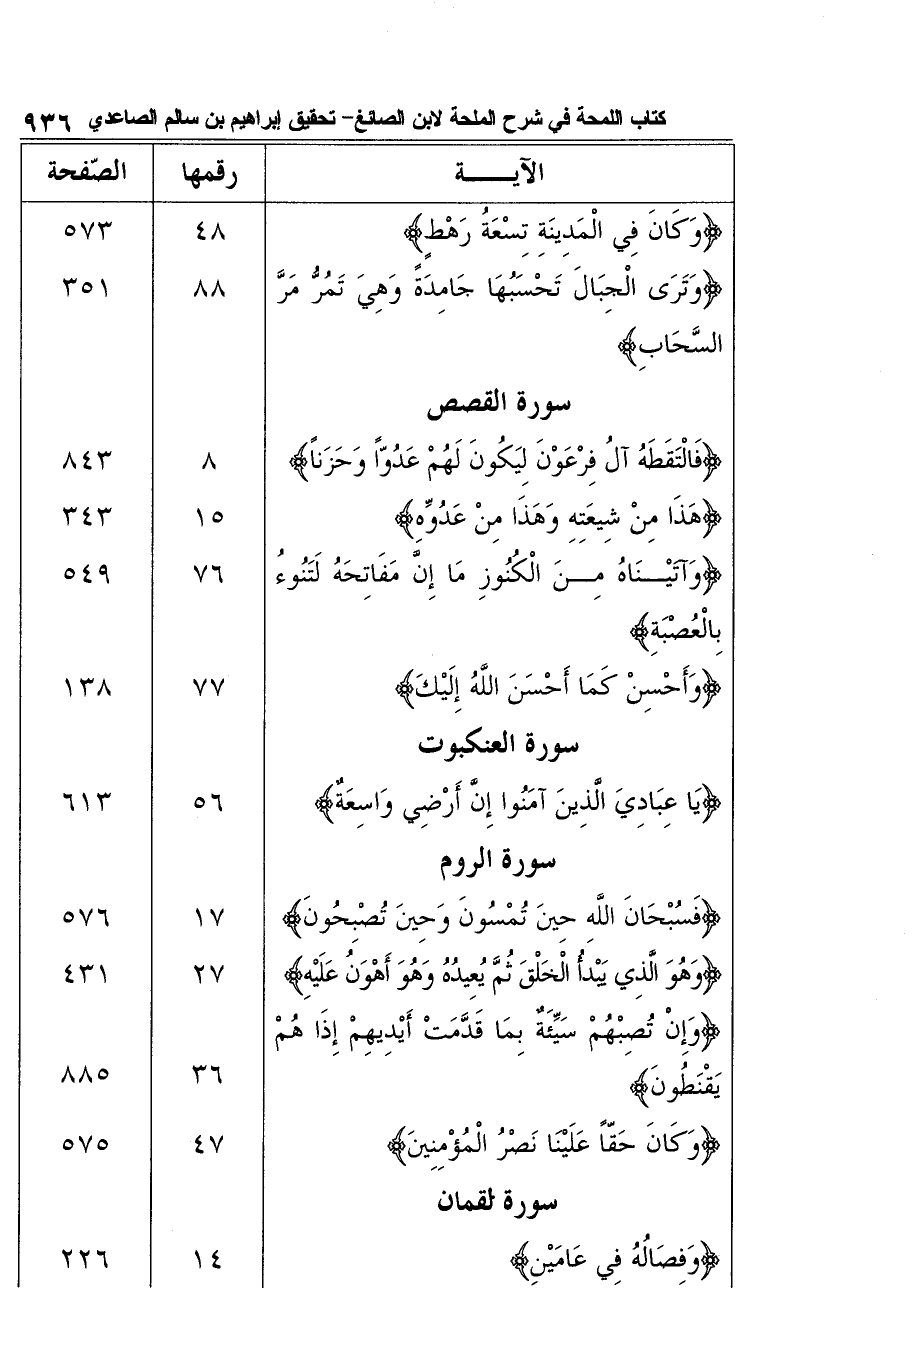 كتاب اللمحة في شرح الملحة لابن الصائغ- تحقيق إبراهيم بن سالم الصاعدي ٩٣٦
الآيــــــة رقمها الصّفحة
﴿وَكَانَ فِي الْمَدِينَةِ تِسْعَةُ رَهْطٍ﴾ ٤٨ ٥٧٣
﴿وَتَرَى الْجِبَالَ تَحْسَبُهَا جَامِدَةً وَهِيَ تَمُرُّ مَرَّ ٨٨ ٣٥١
السَّحَابِ﴾
سورة القصص
﴿فَالْتَقَطَهُ آلُ فِرْعَوْنَ لِيَكُونَ لَهُمْ عَدُوّاً وَحَزَناً﴾ ٨ ٨٤٣
﴿هَذَا مِنْ شِيعَتِهِ وَهَذَا مِنْ عَدُوِّهِ﴾ ١٥ ٣٤٣
﴿وَآتَيْـــنَاهُ مِـــنَ الْكُنُوزِ مَا إِنَّ مَفَاتِحَهُ لَتَنُوءُ ٧٦ ٥٤٩
بِالْعُصْبَةِ﴾
﴿وَأَحْسِنْ كَمَا أَحْسَنَ اللَّهُ إِلَيْكَ﴾ ٧٧ ١٣٨
سورة العنكبوت
﴿يَا عِبَادِيَ الَّذِينَ آمَنُوا إِنَّ أَرْضِي وَاسِعَةٌ﴾ ٥٦ ٦١٣
سورة الروم
﴿فَسُبْحَانَ اللَّهِ حِينَ تُمْسُونَ وَحِينَ تُصْبِحُونَ﴾ ١٧ ٥٧٦
﴿وَهُوَ الَّذِي يَبْدأُ الْخَلْقَ ثُمَّ يُعِيدُهُ وَهُوَ أَهْوَنُ عَلَيْهِ﴾ ٢٧ ٤٣١
﴿وَإِنْ تُصِبْهُمْ سَيِّئَةٌ بِمَا قَدَّمَتْ أَيْدِيهِمْ إِذَا هُمْ
يَقْنَطُونَ﴾ ٣٦ ٨٨٥
﴿وَكَانَ حَقّاً عَلَيْنَا نَصْرُ الْمُؤْمِنِينَ﴾ ٤٧ ٥٧٥
سورة لقمان
﴿وَفِصَالُهُ فِي عَامَيْنِ﴾ ١٤ ٢٢٦